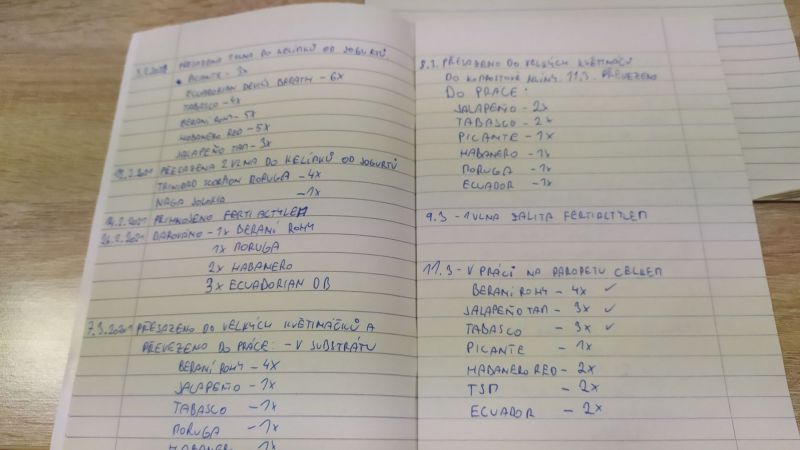 PŘESAZENA 1 VLNA DO KELÍMKŮ OD JOGURTŮ
PICANTE - 3x
ECUADORIAN DEVILS BREATH - 6x
TABASCO - 4x
BERANÍ ROHY - 5x
HABANERO RED - 5x
JALAPEÑO TAM - 3x
PŘESAZENA 2 VLNA DO KELÍMKŮ OD JOGURTŮ
TRINIDAD SCORPION MORUGA - 4x
NAGA - 1x
PŘIHNOJENO FERTIACTYLEM
26.2.2021 DAROVÁNO - 1x BERANÍ ROHY
1x MORUGA
2x HABANERO
3x ECUADORIAN DB
7.3.2021 PŘESAZENO DO VELKÝCH KVĚTINÁČKŮ A
PŘEVEZENO DO PRÁCE: - V SUBSTRÁTU
BERANÍ ROHY - 4x
JALAPEÑO - 1x
TABASCO - 1x
MORUGA - 1x
HABANERO 1x
8.3. PŘESAZENO DO VELKÝCH KVĚTINÁČŮ
DO KOMPOSTOVÉ HLÍNY. 11.3. PŘEVEZENO
DO PRÁCE:
JALAPEÑO - 2x
TABASCO - 2x
PICANTE - 1x
HABANERO - 1x
MORUGA - 1x
ECUADOR - 1x
9.3 - 1 VLNA ZALITA FERTIACTYLEM
11.3 - V PRÁCI NA PARAPETU CELKEM
BERANÍ ROHY - 4x ✓
JALAPEÑO TAM - 3x ✓
TABASCO - 3x ✓
PICANTE - 1x
HABANERO RED - 2x
TSM - 2x
ECUADOR - 2x